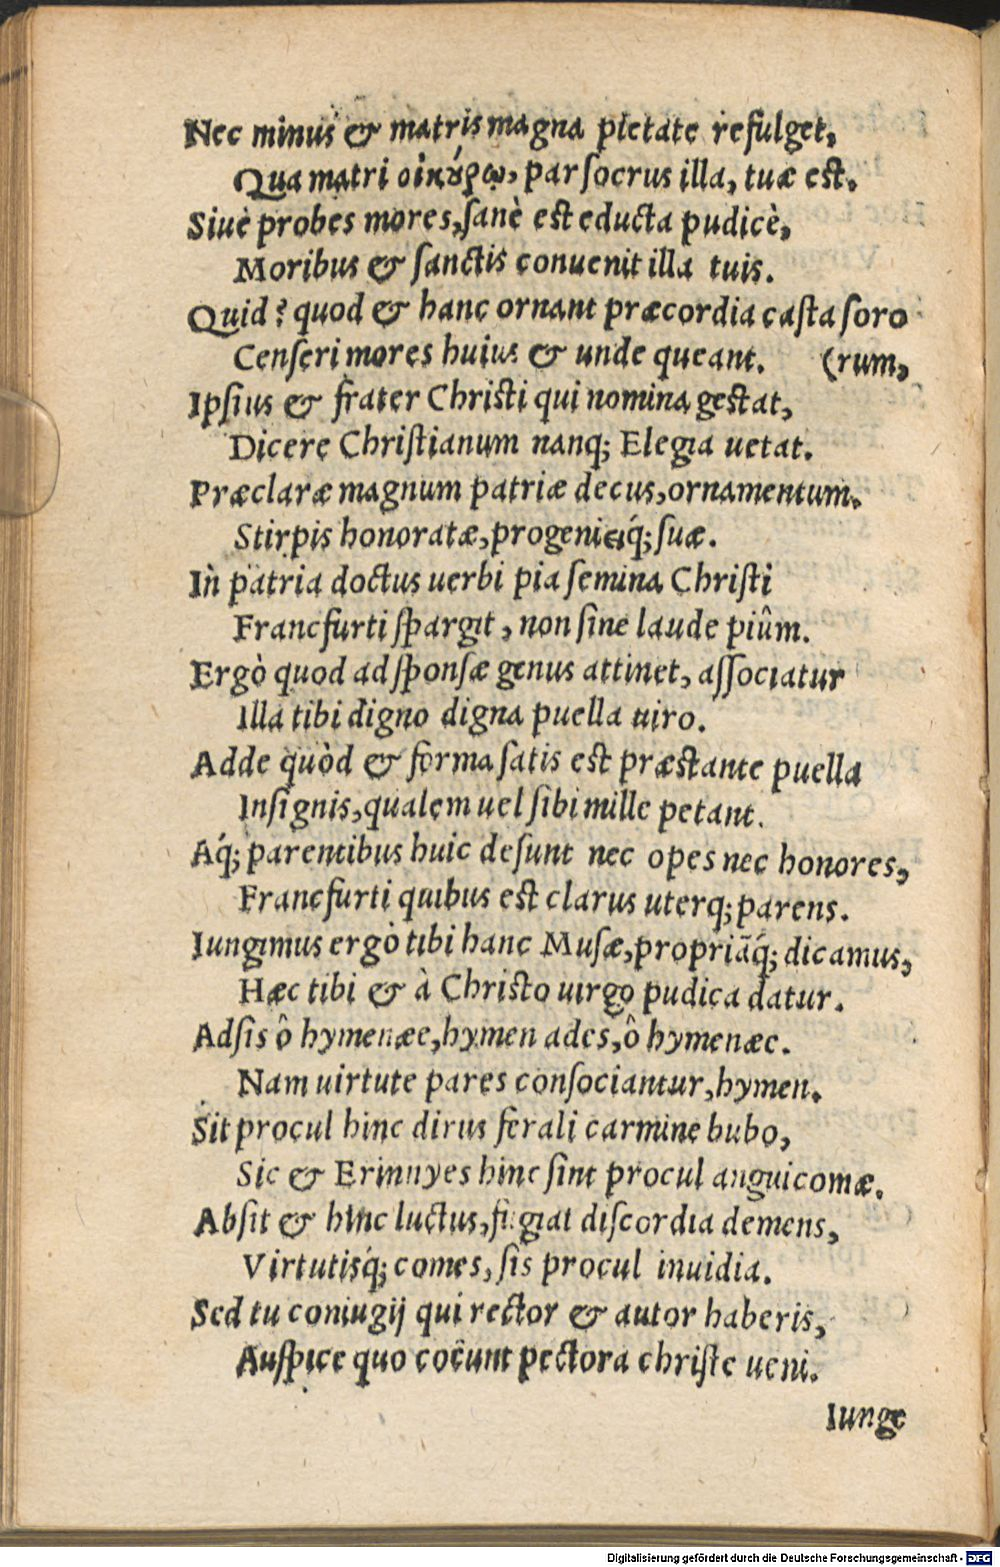 Nec minus & matris magna pietate refulget,
Qua matri οἰκύρῳ, par socrus illa, tuæ est.
Siuè probes mores, sanè est educta pudicè,
Moribus & sanctis conuenit illa tuis.
Quid? quod & hanc ornant præcordia casta soro
Censeri mores huius & unde queant. (rum,
Ipsius & frater Christi qui nomina gestat,
Dicere Christianum nanq; Elegia uetat.
Præclaræ magnum patriæ decus, ornamentum.
Stirpis honoratæ, progenieiq́; suæ.
In patria doctus uerbi pia semina Christi
Francfurti spargit, non sine laude piûm.
Ergò quod ad sponsæ genus attinet, associatur
Illa tibi digno digna puella uiro.
Adde quòd & forma satis est præstante puella
Insignis, qualem uel sibi mille petant.
Aq́; parentibus huic desunt nec opes nec honores,
Francfurti quibus est clarus uterq; parens.
Iungimus ergò tibi hanc Musæ, propriãq́; dicamus,
Hæc tibi & à Christo uirgo pudica datur.
Adsis ô hymenæe, hymen ades, ô hymenæe.
Nam uirtute pares consociantur, hymen.
Sit procul hinc dirus ferali carmine bubo,
Sic & Erinnyes hinc sint procul anguicomæ.
Absit & hinc luctus, fugiat discordia demens,
Virtutisq́; comes, sis procul inuidia.
Sed tu coniugij qui rector & autor haberis,
Auspice quo coëunt pectora christe ueni.
Iunge
Digitalisierung gefördert durch die Deutsche Forschungsgemeinschaft - DFG